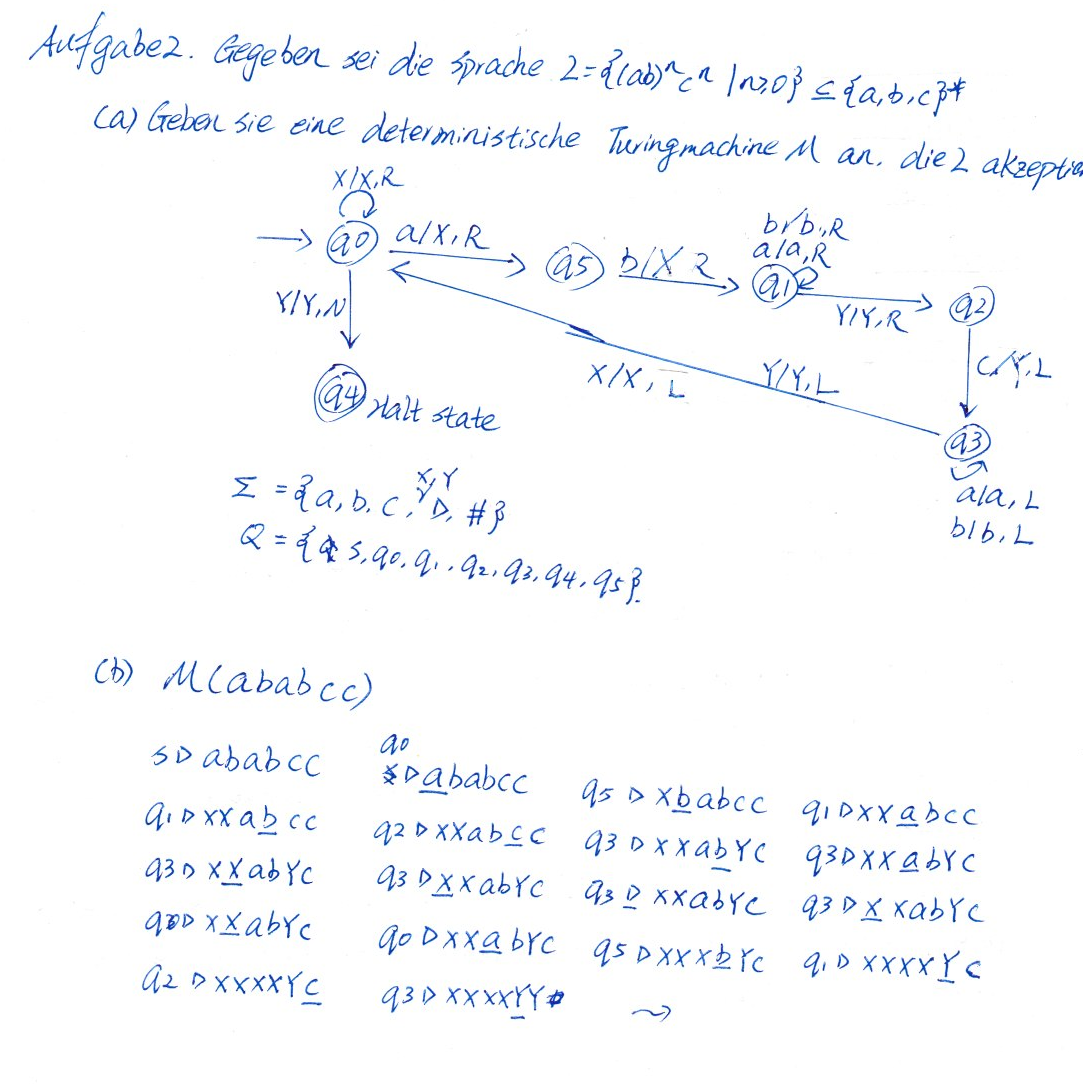 Aufgabe2. Gegeben sei die sprache L={(ab)ⁿcⁿ | n≥0} ⊆ {a,b,c}*
(a) Geben sie eine deterministische Turingmachine M an. die L akzeptier
X/X,R
q0 a/X,R q5 b/X R
b/b,R
a/a,R
q1
Y/Y,R
q2
Y/Y,N
c/Y,L
X/X, L Y/Y,L
q4 Halt state
q3
a/a, L
b/b, L
X,Y
Σ = {a, b, c, Y ▷, #}
Q = {s, q0, q1, q2, q3, q4, q5}.
(b) M(ababcc)
s▷ababcc q0 ▷ababcc q5 ▷Xbabcc q1▷XXabcc
q1▷XXabcc q2▷XXabcc q3▷XXabYc q3▷XXabYc
q3▷XXabYc q3▷XXabYc q3▷XXabYc q3▷XXabYc
q0▷XXabYc q0▷XXabYc q5▷XXXbYc q1▷XXXXYc
q2▷XXXXYc q3▷XXXXYY ⤳